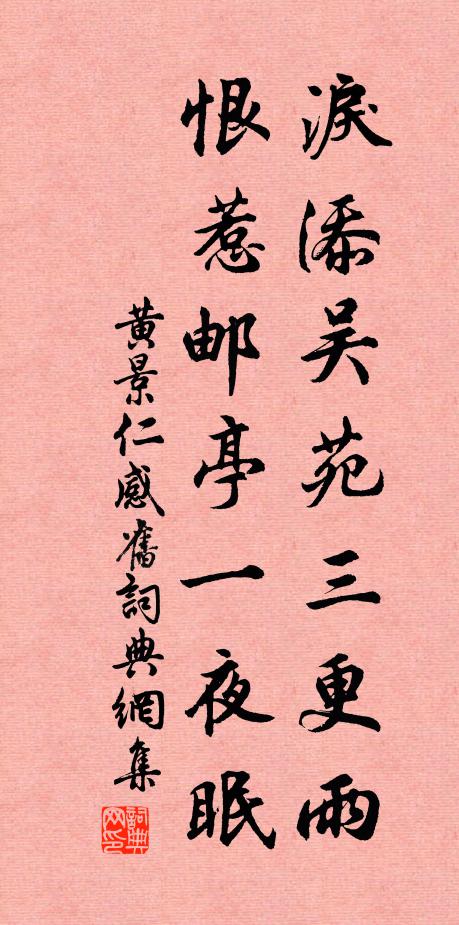 淚添吴苑三更雨
恨惹邮亭一夜眠
黄景仁感舊詞典網集
詞典网印